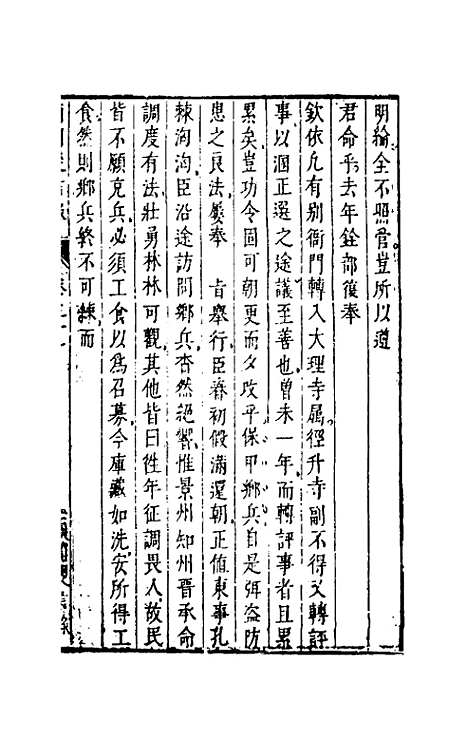 明綸全不照管豈所以遵
君命乎去年銓部復奉
欽依凡有別衙門轉入大理寺屬徑升寺副不得又轉評
事以溷正選之途議至善也曾未一年而轉評事者且累
累矣豈功令固可朝更而夕改乎保甲鄉兵自是弭盜防
患之良法屢奉　旨舉行臣春初假滿還朝正值東事孔
棘洶洶臣沿途訪問鄉兵杳然絕響惟景州知州晉承命
調度有法壯勇林林可觀其他皆曰徃年征調畏人故民
皆不願克兵必須工食以為召募今庫藏如洗安所得工
食然則鄉兵終不可練而